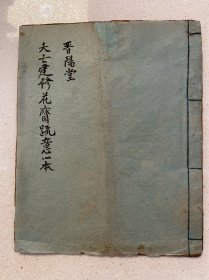 晉陽堂
大亡建修花齋疏意一本